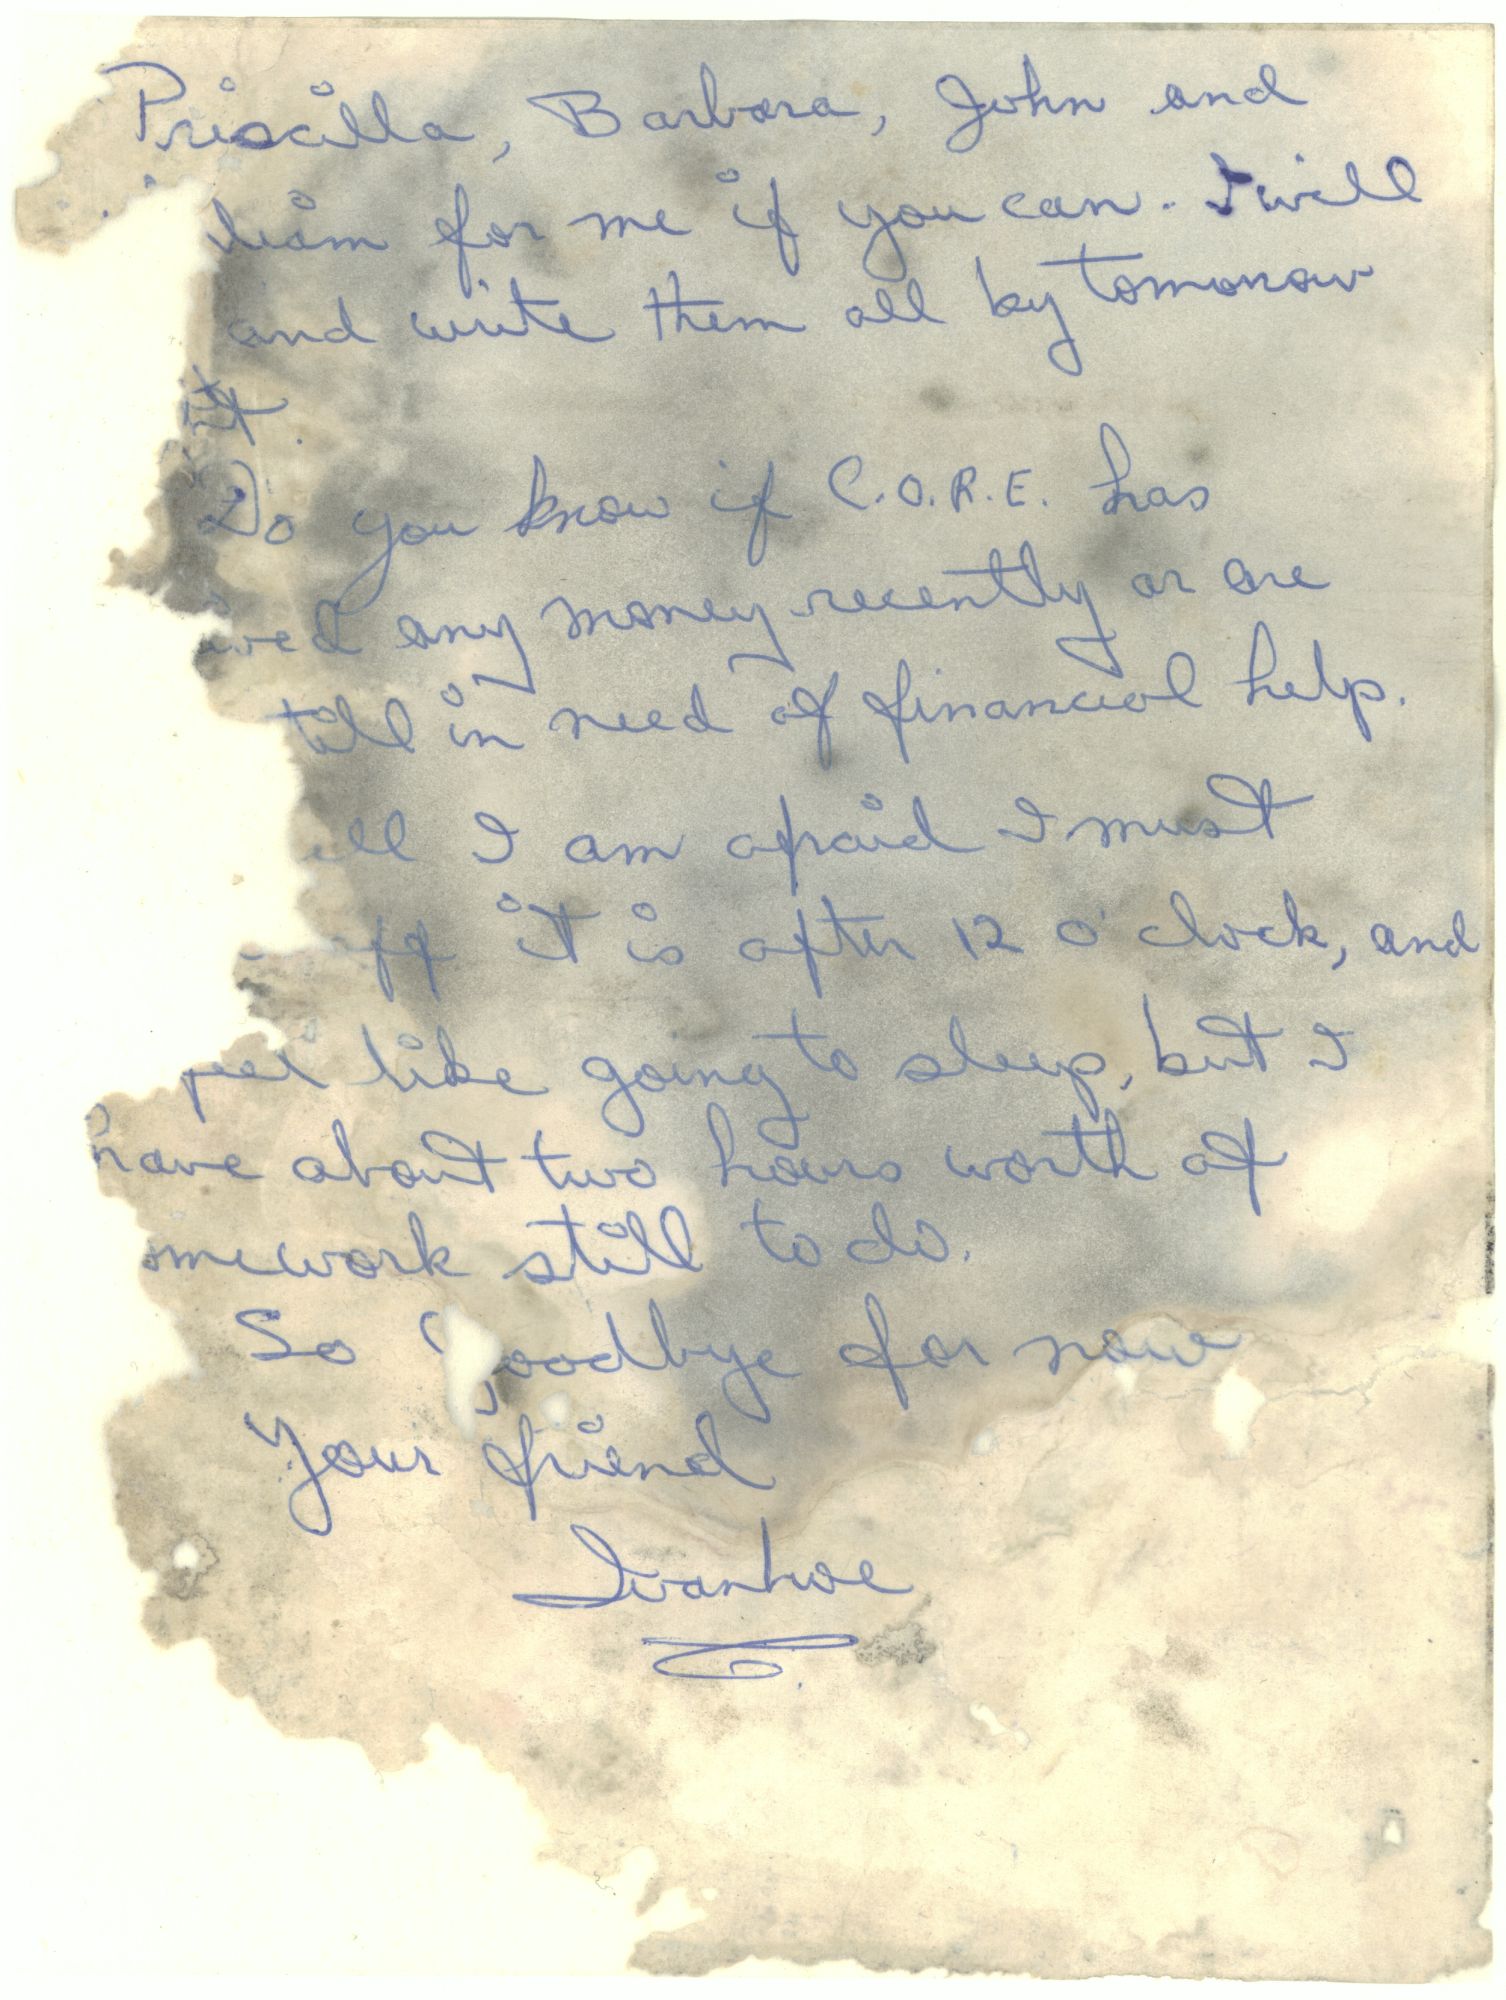 Priscilla, Barbara, John and
liam for me if you can. I will
and write them all by tomorrow
it.
Do you know if C.O.R.E. has
ived any money recently or are
till in need of financial help.
ell I am afraid I must
off it is after 12 o'clock, and
feel like going to sleep, but I
have about two hours worth of
omework still to do.
So Goodbye for now
Your friend
Ivanhoe